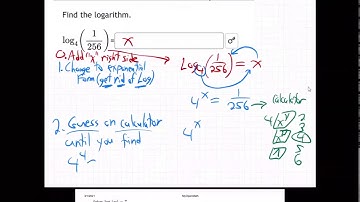 Find the logarithm.
log₄(1/256) = x
0. Add "x" right side
Log₄(1/256) = x
1. Change to exponential
Form (get rid of Log)
4^x = 1/256 → calculator
2. Guess on calculator
until you find
4^4
4^x
4 x^y 2
3
x^y 4
5
6